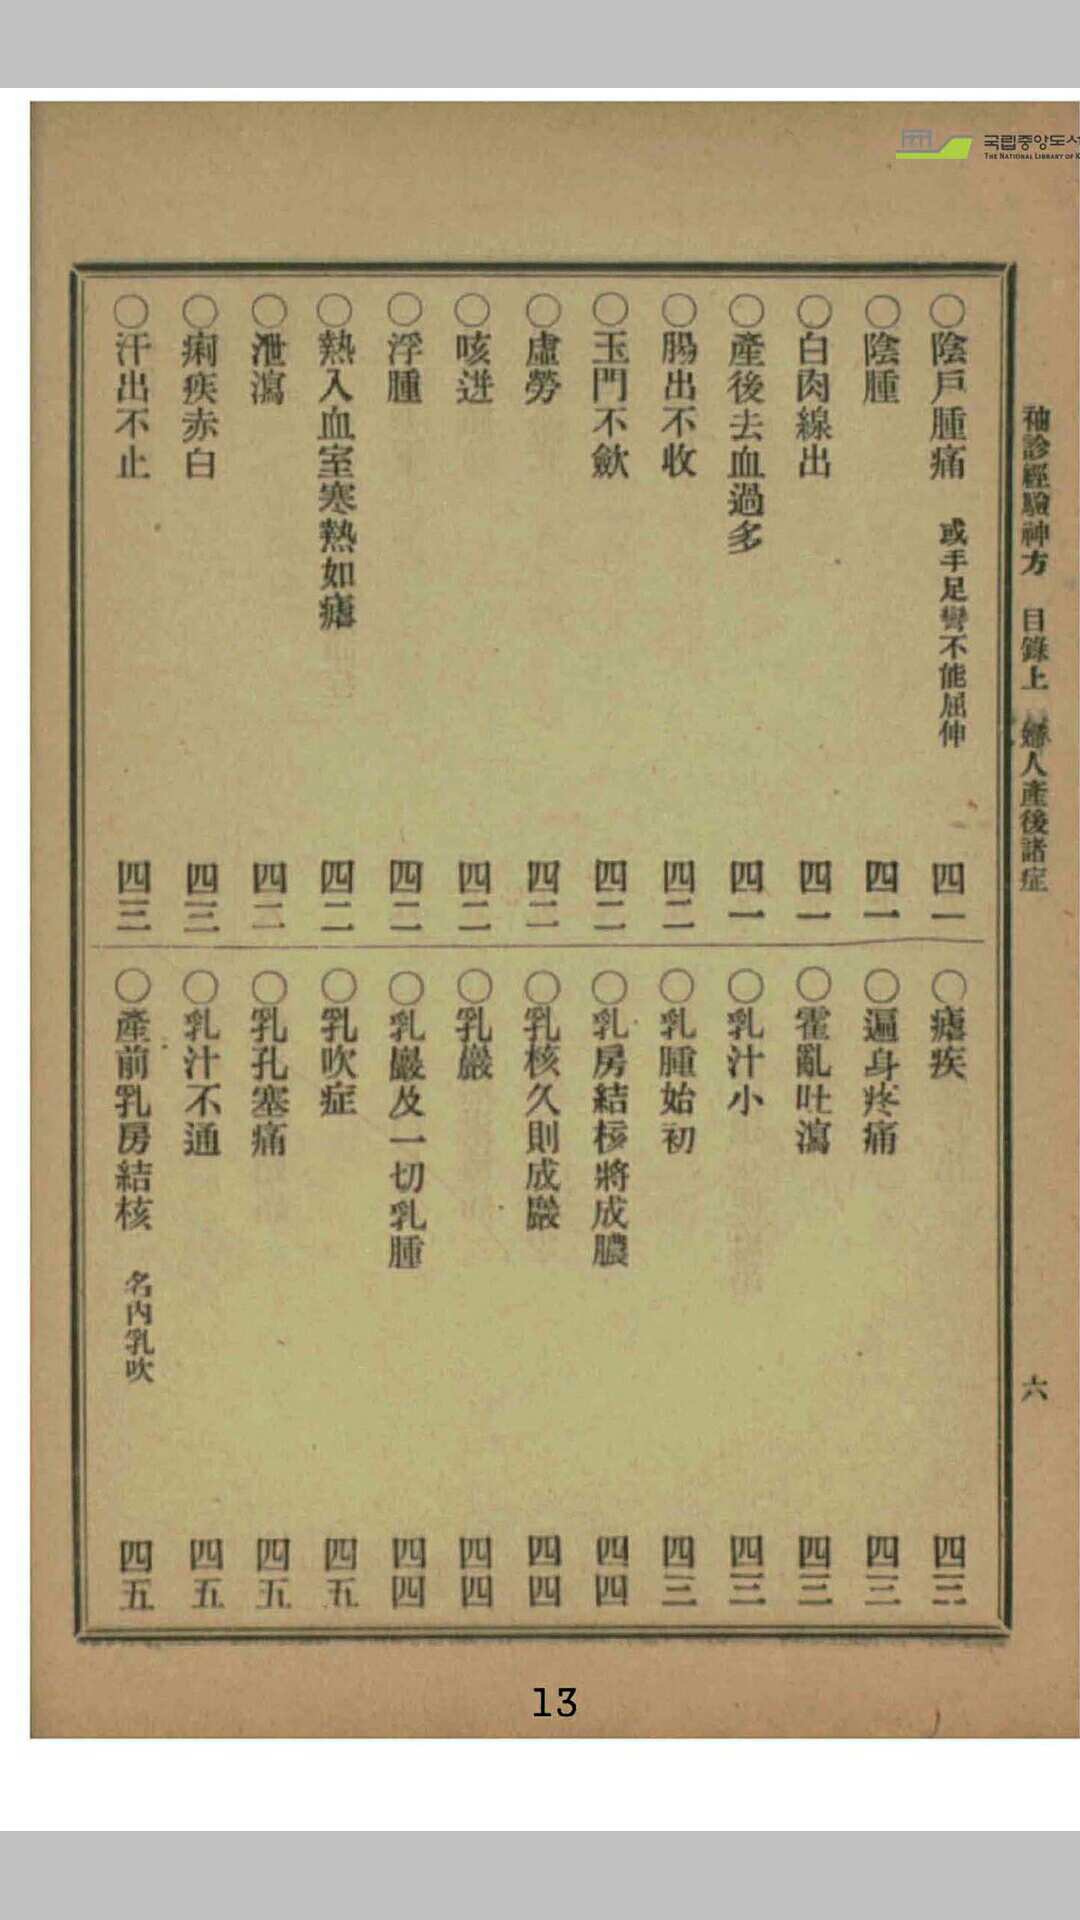 국립중앙도서
THE NATIONAL LIBRARY OF K
袖診經驗神方 目錄上 婦人產後諸症 六
〇陰戶腫痛 或手足彎不能屈伸 四一
〇陰腫 四一
〇白肉線出 四一
〇產後去血過多 四一
〇腸出不收 四二
〇玉門不歛 四二
〇虛勞 四二
〇咳迸 四二
〇浮腫 四二
〇熱入血室寒熱如瘧 四二
〇泄瀉 四二
〇痢疾赤白 四三
〇汗出不止 四三
〇瘧疾 四三
〇遍身疼痛 四三
〇霍亂吐瀉 四三
〇乳汁小 四三
〇乳腫始初 四三
〇乳房結核將成膿 四四
〇乳核久則成巖 四四
〇乳巖 四四
〇乳巖及一切乳腫 四四
〇乳吹症 四五
〇乳孔塞痛 四五
〇乳汁不通 四五
〇產前乳房結核 名內乳吹 四五
13